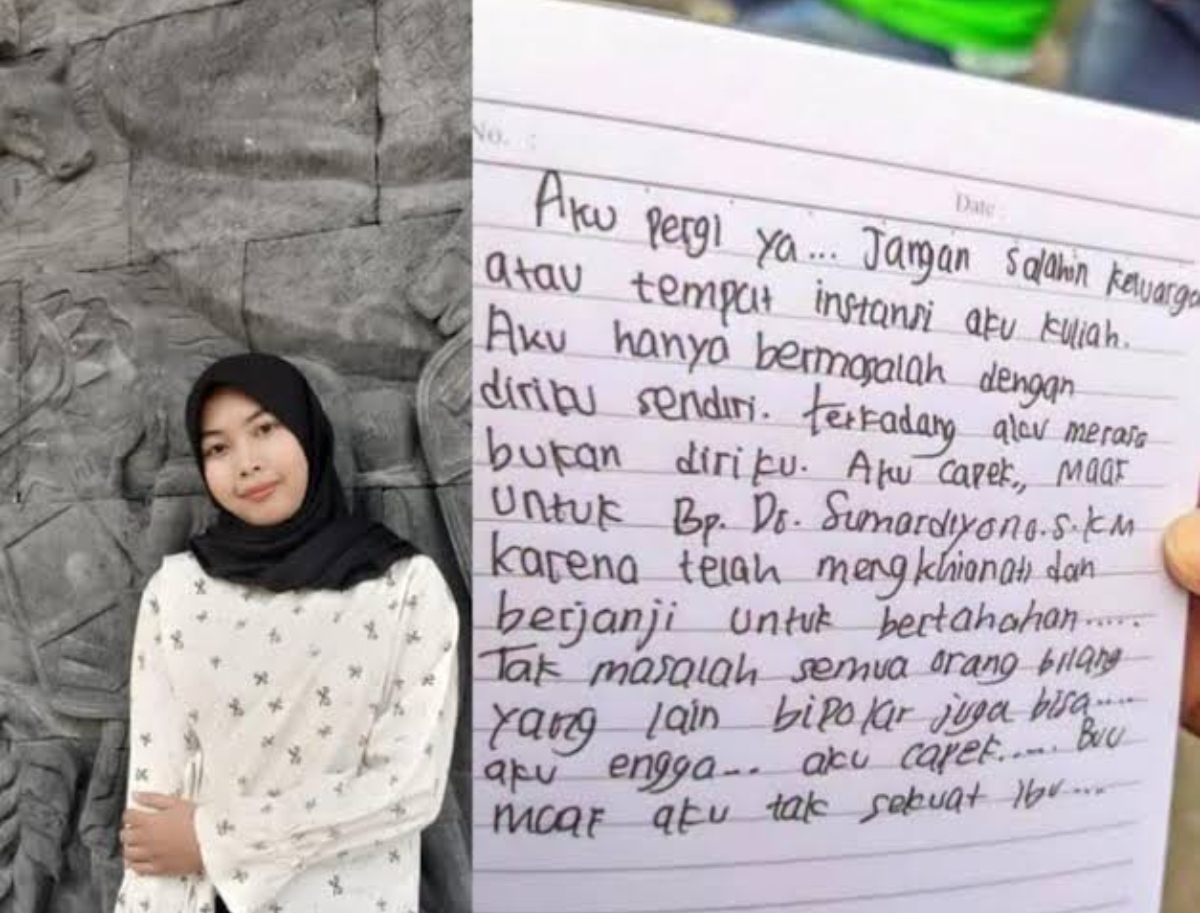 No. :
Date :
Aku pergi ya... Jangan salahin keluarga
atau tempat instansi aku kuliah.
Aku hanya bermasalah dengan
diriku sendiri. terkadang aku merasa
bukan diriku. Aku capek., maaf
untuk Bp. Dr. Sumardiyono.S.KM
karena telah mengkhianati dan
berjanji untuk bertahahan.....
Tak masalah semua orang bilang
yang lain bipolar juga bisa....
aku engga... aku capek..... Buu
maaf aku tak sekuat ibu....